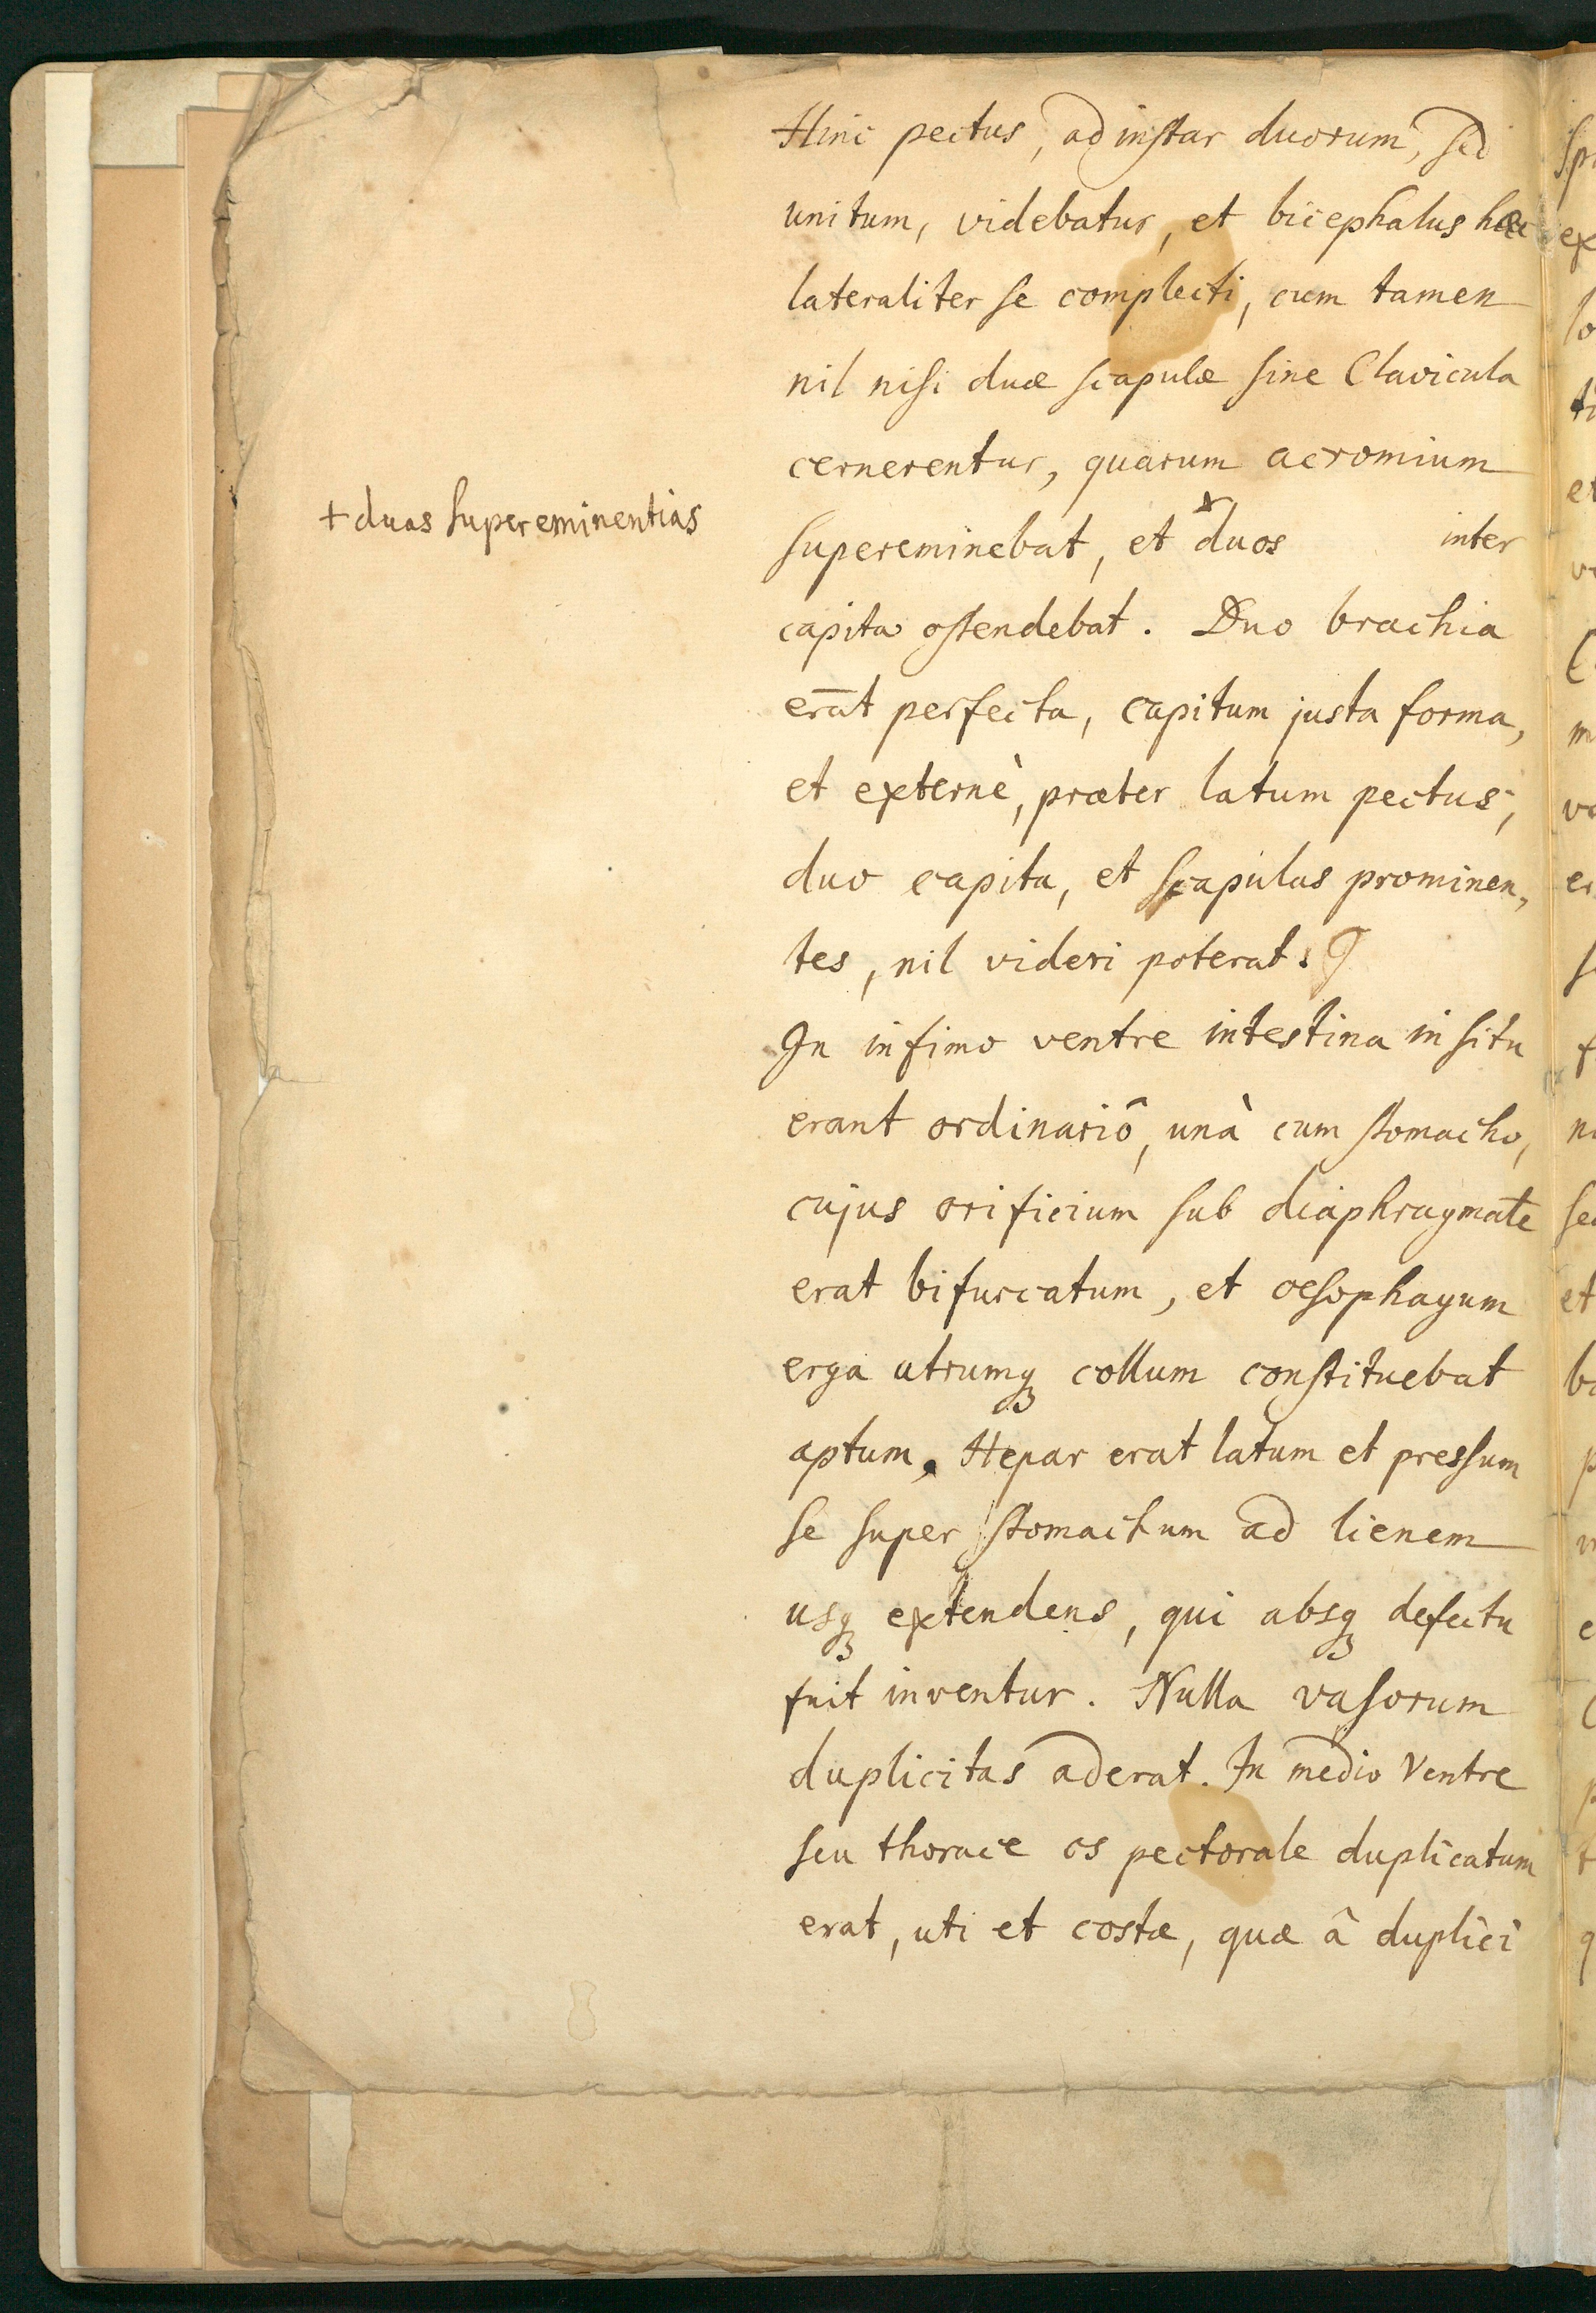 Hinc pectus, ad instar duorum, sed
unitum, videbatur, et bicephalus hæc
lateraliter se complecti, cum tamen
nil nisi duæ scapulæ sine Clavicula
cernerentur, quarum acromium
+ duas supereminentias
supereminebat, et + duos inter
capita ostendebat. Duo brachia
erāt perfecta, capitum justa forma,
et externè, præter latum pectus,
duo capita, et scapulas prominen,
tes, nil videri poterat.
In infimo ventre intestina in situ
erant ordinariô, unà cum stomacho,
cujus orificium sub diaphragmate
erat bifurcatum, et œsophagum
erga utrumqꝫ collum constituebat
aptum. Hepar erat latum et pressum
se super stomachum ad lienem
usqꝫ extendens, qui absqꝫ defectu
fuit inventur. Nulla vasorum
duplicitas aderat. In medio Ventre
seu thorace os pectorale duplicatum
erat, uti et costæ, quæ â duplici